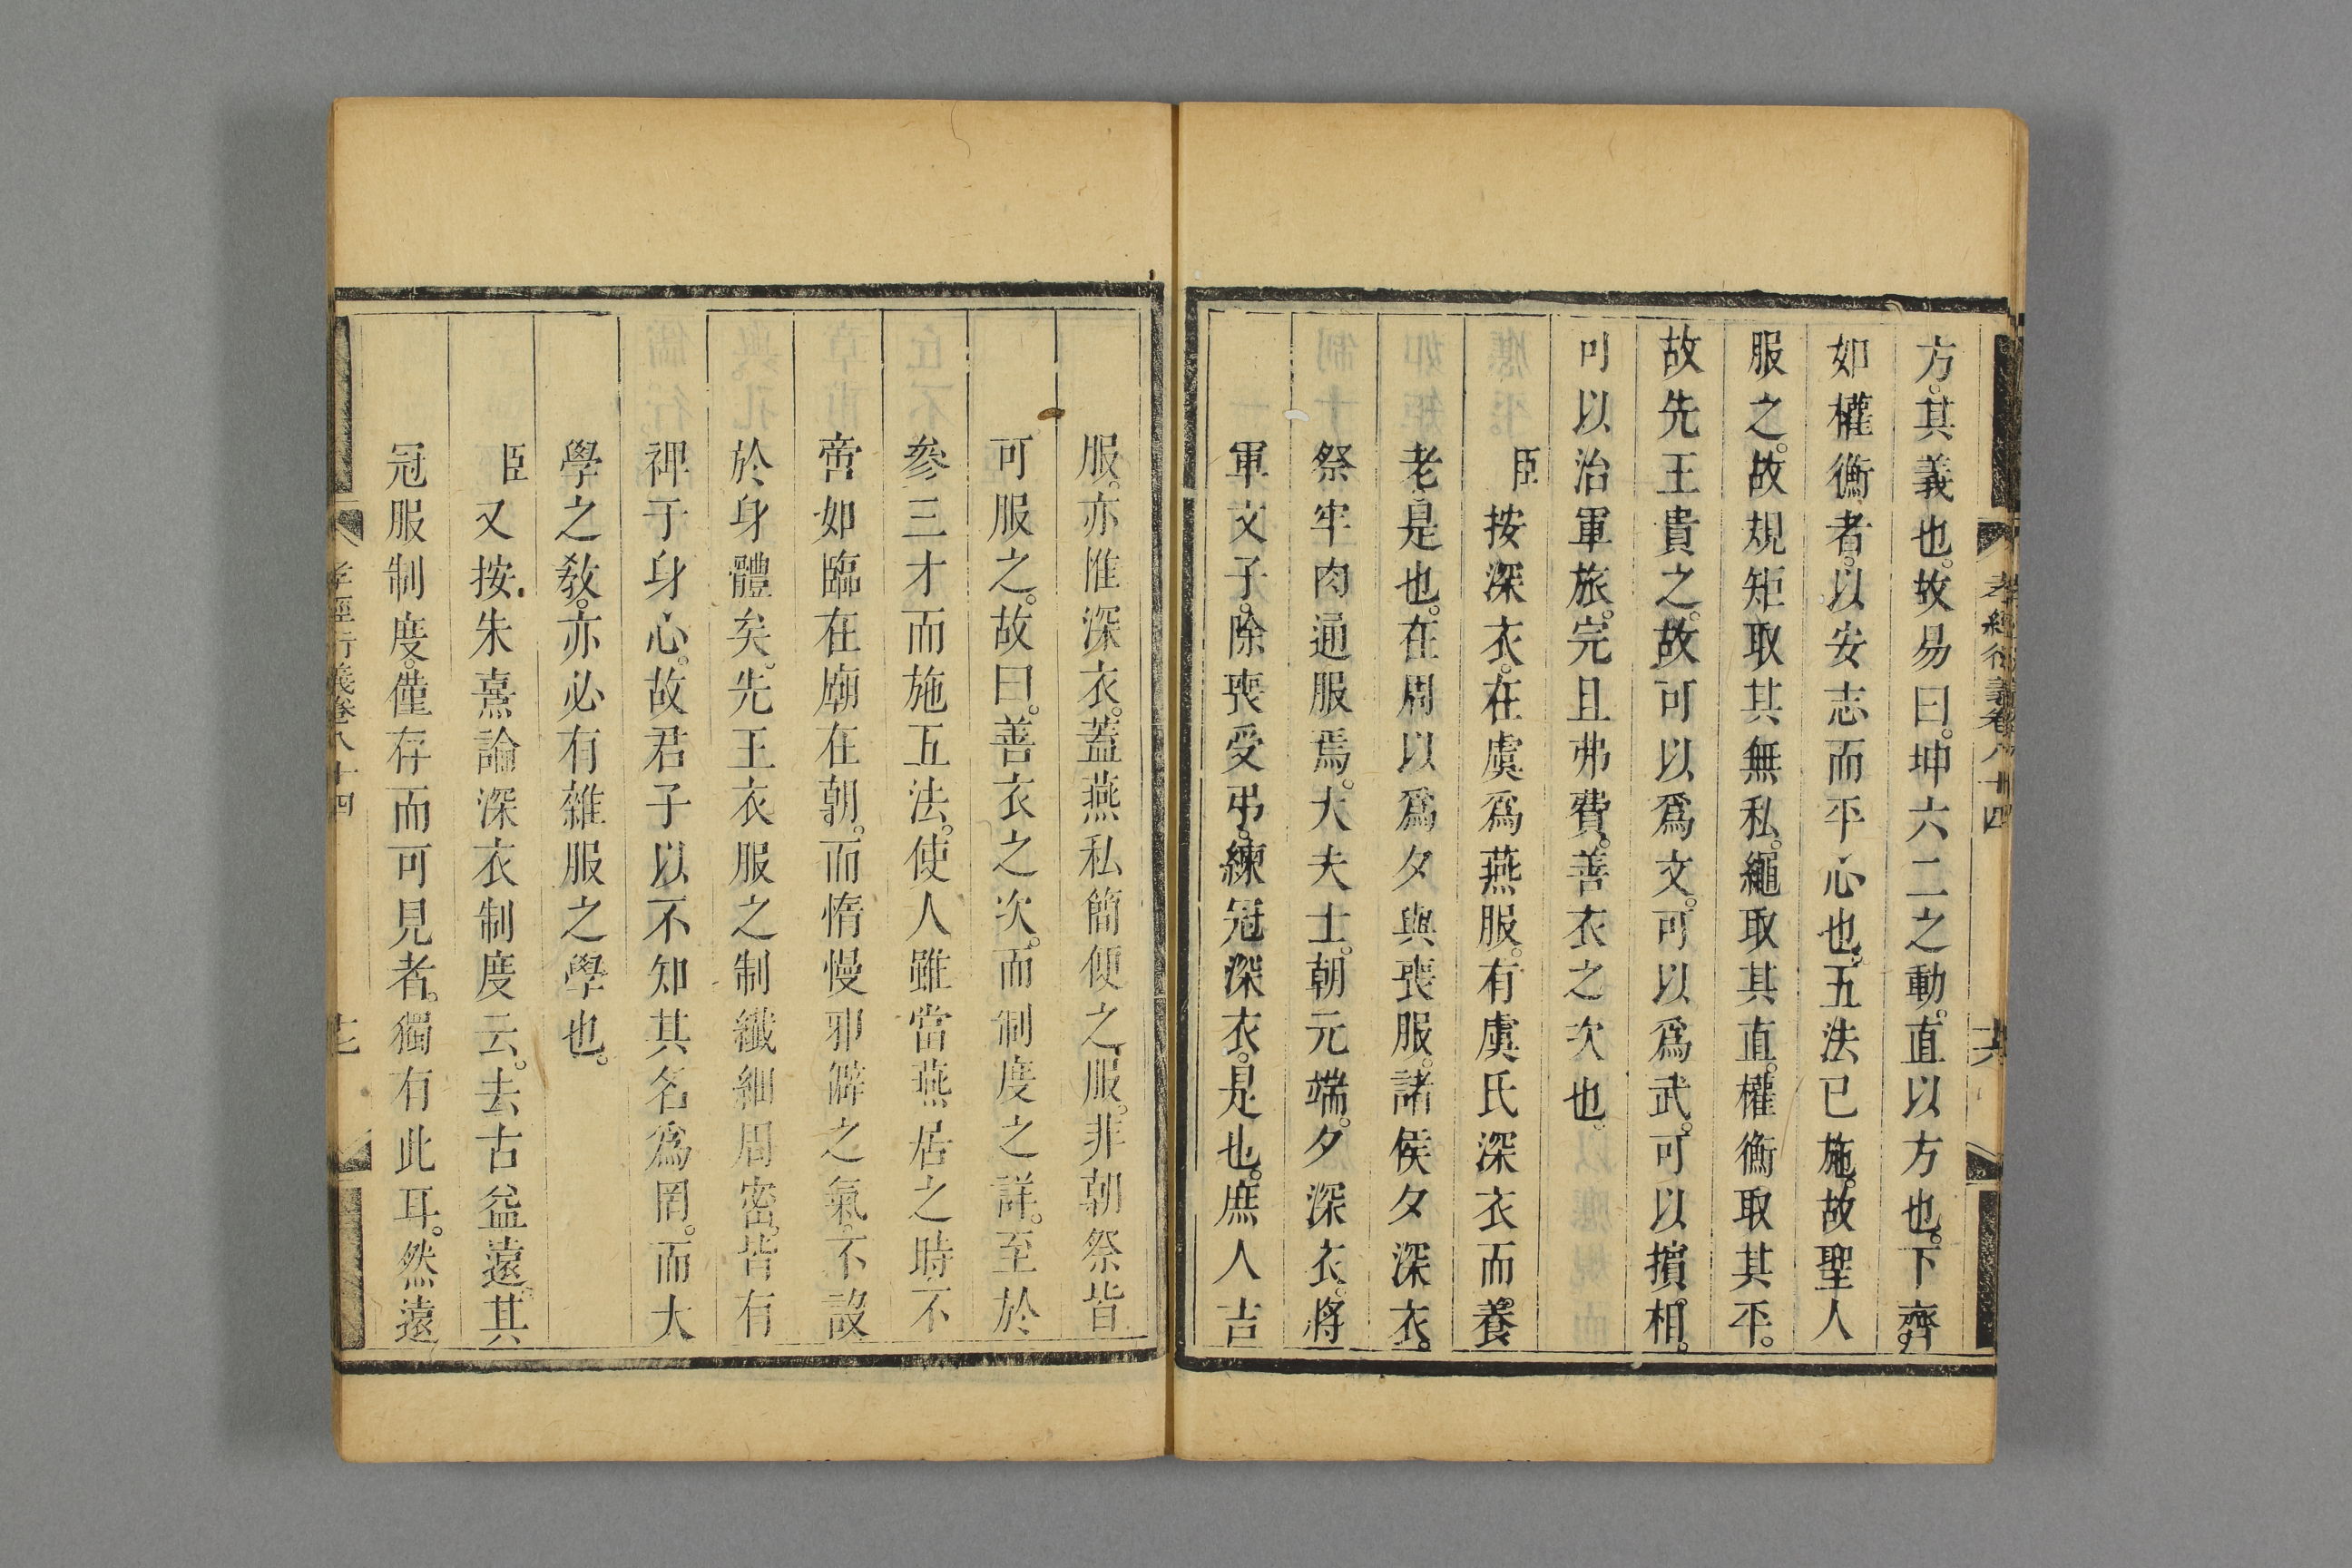 孝經衍義卷八十四
十六
方。其義也。故易曰。坤六二之動。直以方也。下齊
如權衡者。以安志而平心也。五法已施。故聖人
服之。故規矩取其無私。繩取其直。權衡取其平。
故先王貴之。故可以爲文。可以爲武。可以擯相。
可以治軍旅。完且弗費。善衣之次也。
臣按深衣。在虞爲燕服。有虞氏深衣而養
老。是也。在周以爲夕與喪服。諸侯夕深衣。
祭牢肉通服焉。大夫士。朝元端。夕深衣。將
軍文子。除喪受弔。練冠深衣。是也。庶人吉
服。亦惟深衣。蓋燕私簡便之服。非朝祭皆
可服之。故曰。善衣之次。而制度之詳。至於
參三才而施五法。使人雖當燕居之時。不
啻如臨在廟在朝。而惰慢邪僻之氣。不設
於身體矣。先王衣服之制纖細周密。皆有
裨于身心。故君子以不知其名爲罔。而大
學之敎。亦必有雜服之學也。
臣又按。朱熹論深衣制度云。去古益遠。其
冠服制度。僅存而可見者。獨有此耳。然遠
孝經衍義卷八十四